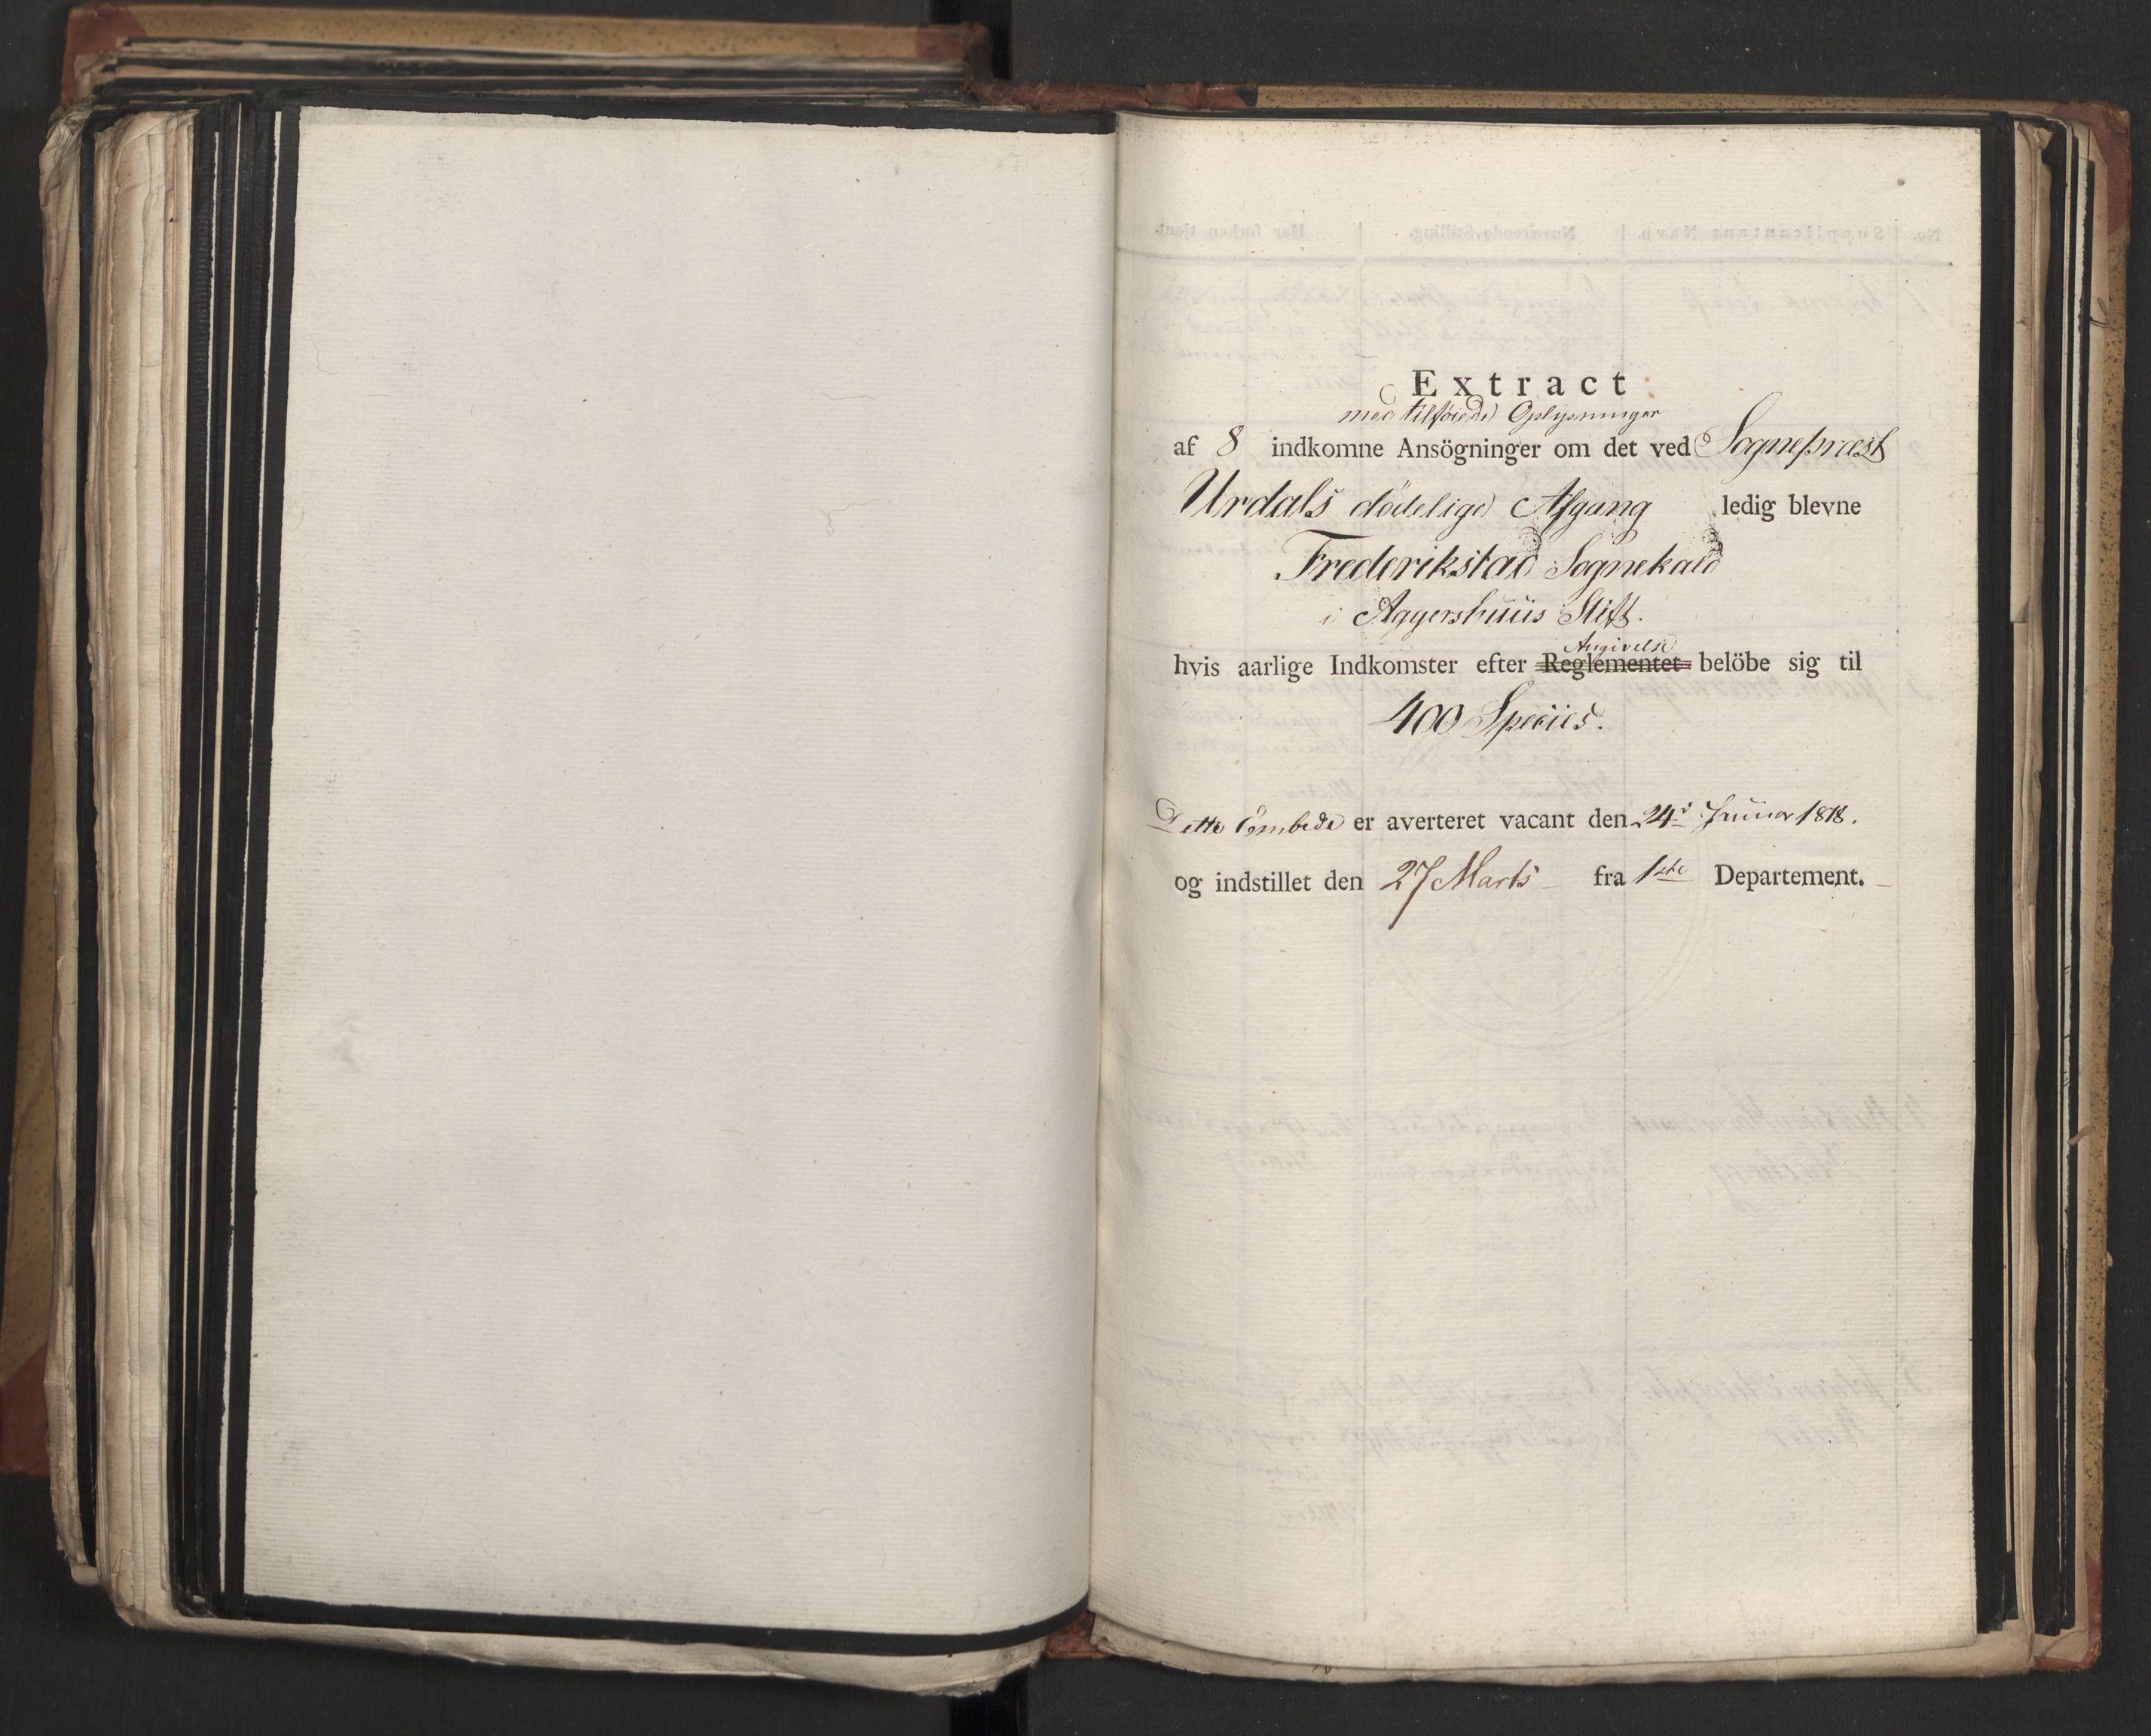 Extract
med tilføiede Oplysninger
af 8 indkomne Ansögninger om det ved Sognepræst
Urdals dödelige Afgang ledig blevne
Frederikstad Sognekald
i Aggershuus Stift.
Angivelse
hvis aarlige Indkomster efter Reglementet belöbe sig til
400 Species.
Dette Embede er averteret vacant den 24de Januar 1818.
og indstillet den 27 Marts fra 1ste Departement.